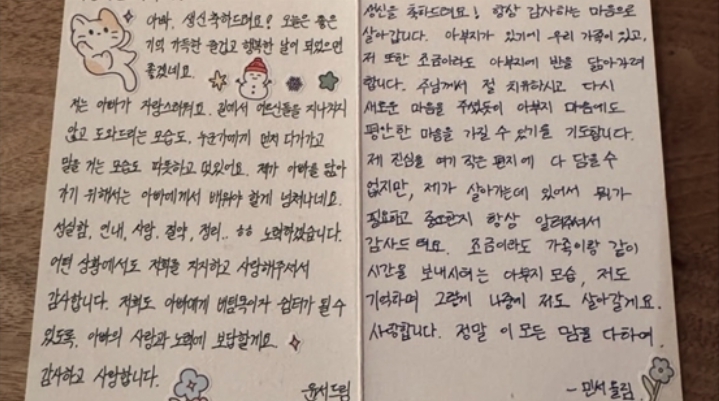 아빠, 생신 축하드려요! 오늘은 좋은
기억 가득한 즐겁고 행복한 날이 되었으면
좋겠네요.
저는 아빠가 자랑스러워요. 길에서 어르신들을 지나치지
않고 도와드리는 모습도, 누군가에게 먼저 다가가고
말을 거는 모습도 따뜻하고 멋있어요. 제가 아빠를 닮아
가기 위해서는 아빠에게서 배워야 할게 넘쳐나네요.
성실함, 인내, 사랑, 절약, 정리.. ㅎㅎ 노력하겠습니다.
어떤 상황에서도 저희를 지지하고 사랑해주셔서
감사합니다. 저희도 아빠에게 버팀목이자 쉼터가 될 수
있도록, 아빠의 사랑과 노력에 보답할게요.
감사하고 사랑합니다.
-윤서드림
생신을 축하드려요! 항상 감사하는 마음으로
살아갑니다. 아부지가 있기에 우리 가족이 있고,
저 또한 조금이라도 아부지에 반을 닮아가려
합니다. 주님께서 절 치유하시고 다시
새로운 마음을 주셨듯이 아부지 마음에도
평안한 마음을 가질 수 있기를 기도합니다.
제 진심을 여기 작은 편지에 다 담을 수
없지만, 제가 살아가는데 있어서 뭐가
필요하고 중요한지 항상 알려주셔서
감사드려요. 조금이라도 가족이랑 같이
시간을 보내시려는 아부지 모습, 저도
기억하며 그렇게 나중에 저도 살아갈게요.
사랑합니다. 정말 이 모든 맘을 다하여.
- 민서 드림